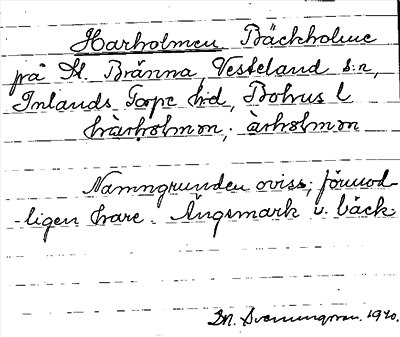 Harholmen Bäckholme
på St. Bränna, Vesteland s:n,
Inlands Torpe h:d, Bohus l
hàrhólmɒn, àrhólmɒn
Namngrunden oviss, förmod-
ligen hare. Ängsmark v. bäck
Dn. Svenningsson. 1940.